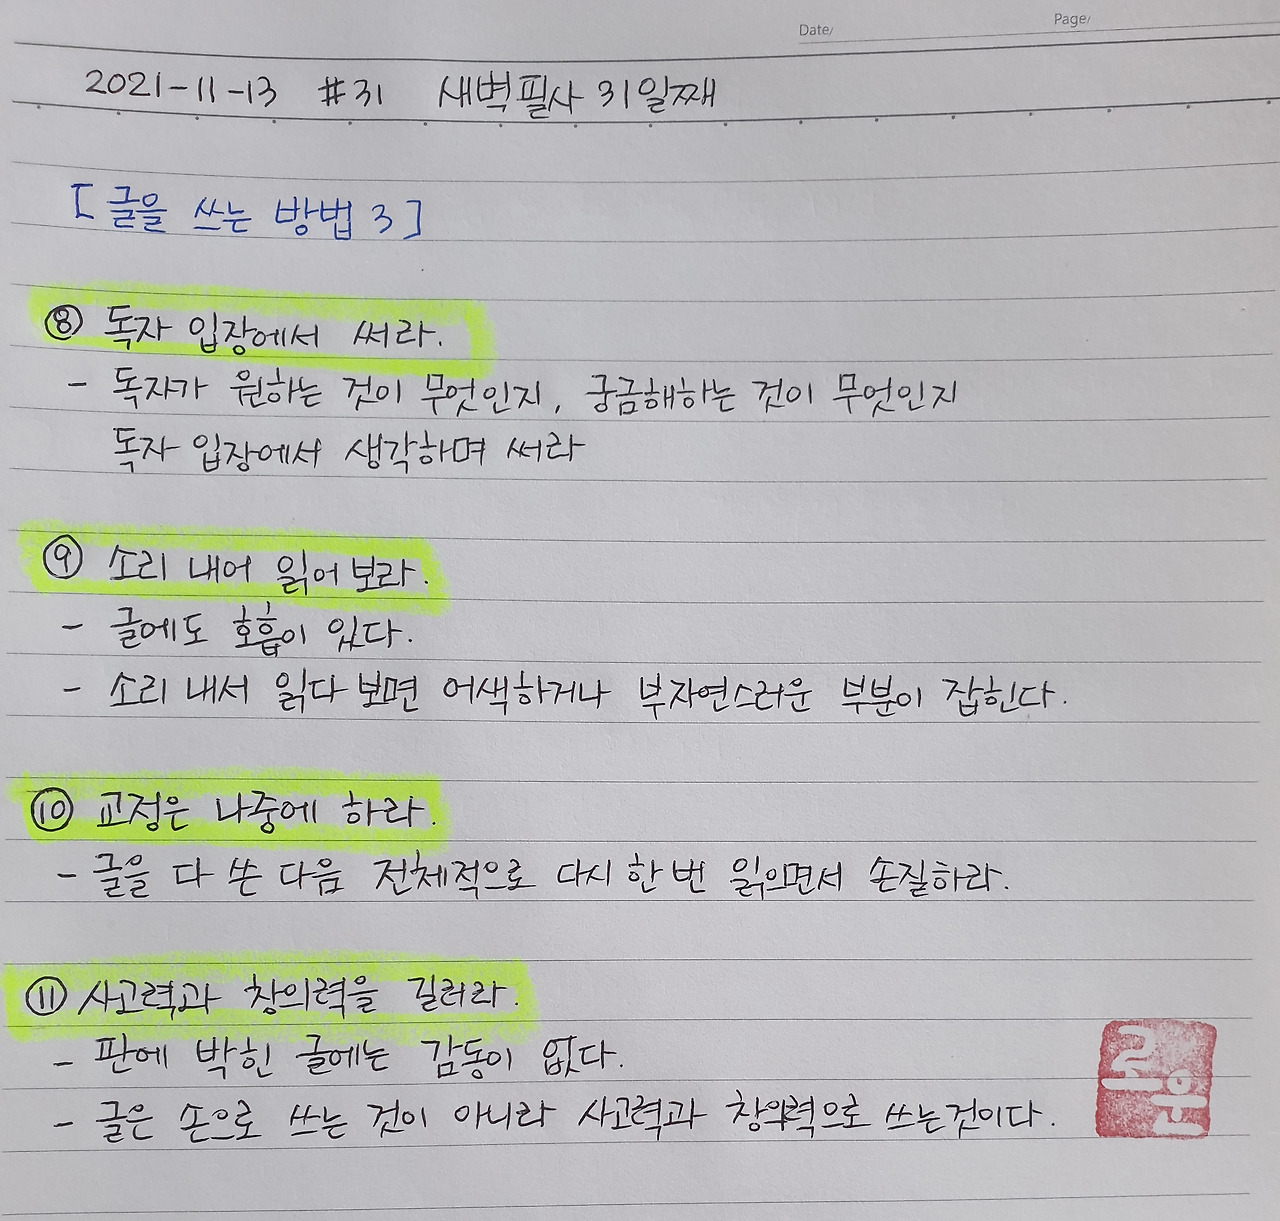 Date/
Page/
2021-11-13 #31 새벽필사 31일째
[글을 쓰는 방법 3]
⑧ 독자 입장에서 써라.
- 독자가 원하는 것이 무엇인지, 궁금해하는 것이 무엇인지
독자 입장에서 생각하며 써라
⑨ 소리 내어 읽어 보라.
- 글에도 호흡이 있다.
- 소리 내서 읽다 보면 어색하거나 부자연스러운 부분이 잡힌다.
⑩ 교정은 나중에 하라.
- 글을 다 쓴 다음 전체적으로 다시 한 번 읽으면서 손질하라.
⑪ 사고력과 창의력을 길러라.
- 판에 박힌 글에는 감동이 없다.
- 글은 손으로 쓰는 것이 아니라 사고력과 창의력으로 쓰는것이다.
로운